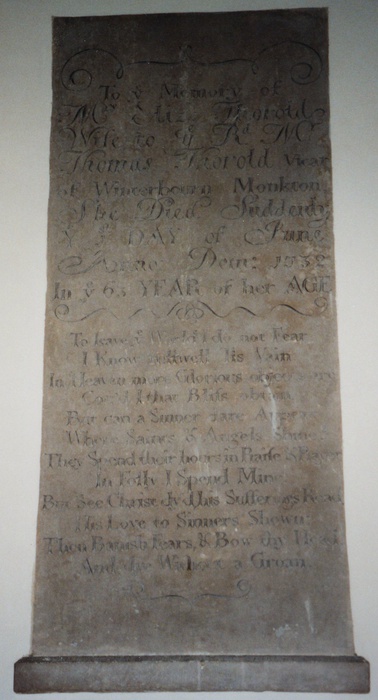 To yͤ Memory of
Mrs Thorold
Wife to yͤ Rd Mr
Thomas Thorold Vicar
of Winterbourn Monkton
She Died Suddenly
DAY of June
Anno Dom:
In yͤ 63 YEAR of her AGE
To leave yͤ World I do not Fear
I Know Its Vain
In Heaven more Glorious
Cou'd I that Bliss obtain
But can a Sinner
Where Saints & Angels Shine
They Spend their hours in Praise & Prayer
In Folly I Spend Mine
But See Christ by His Sufferings Read
His Love to Sinners Shown
Then Banish Fears, & Bow thy Head
And die Without a Groan